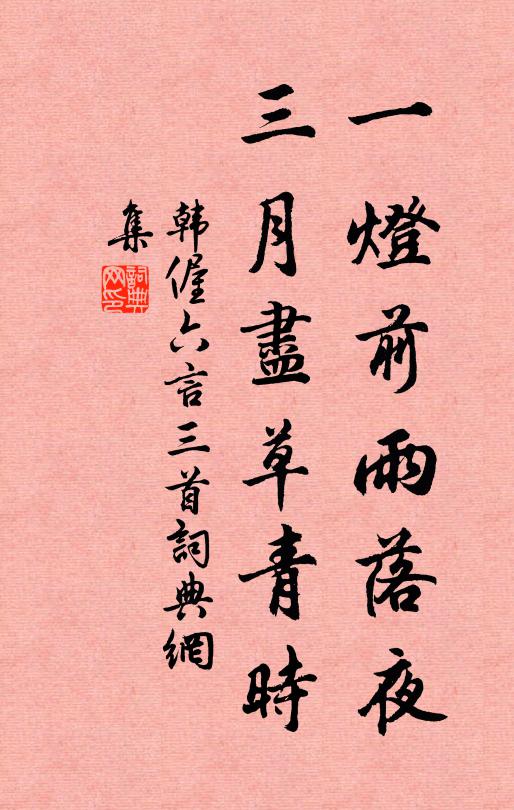 一燈前雨落夜
三月盡草青時
韩偓六言三首詞典網
集
詞典网印